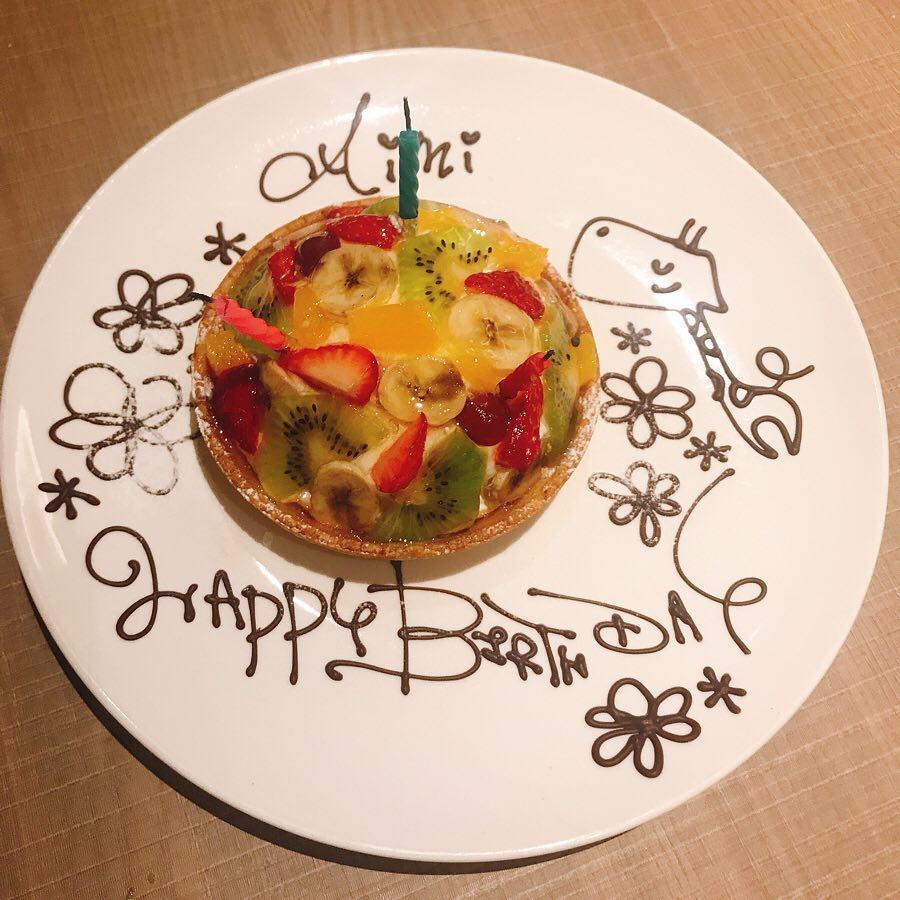 Aimi
HAPPY BIRTHDAY